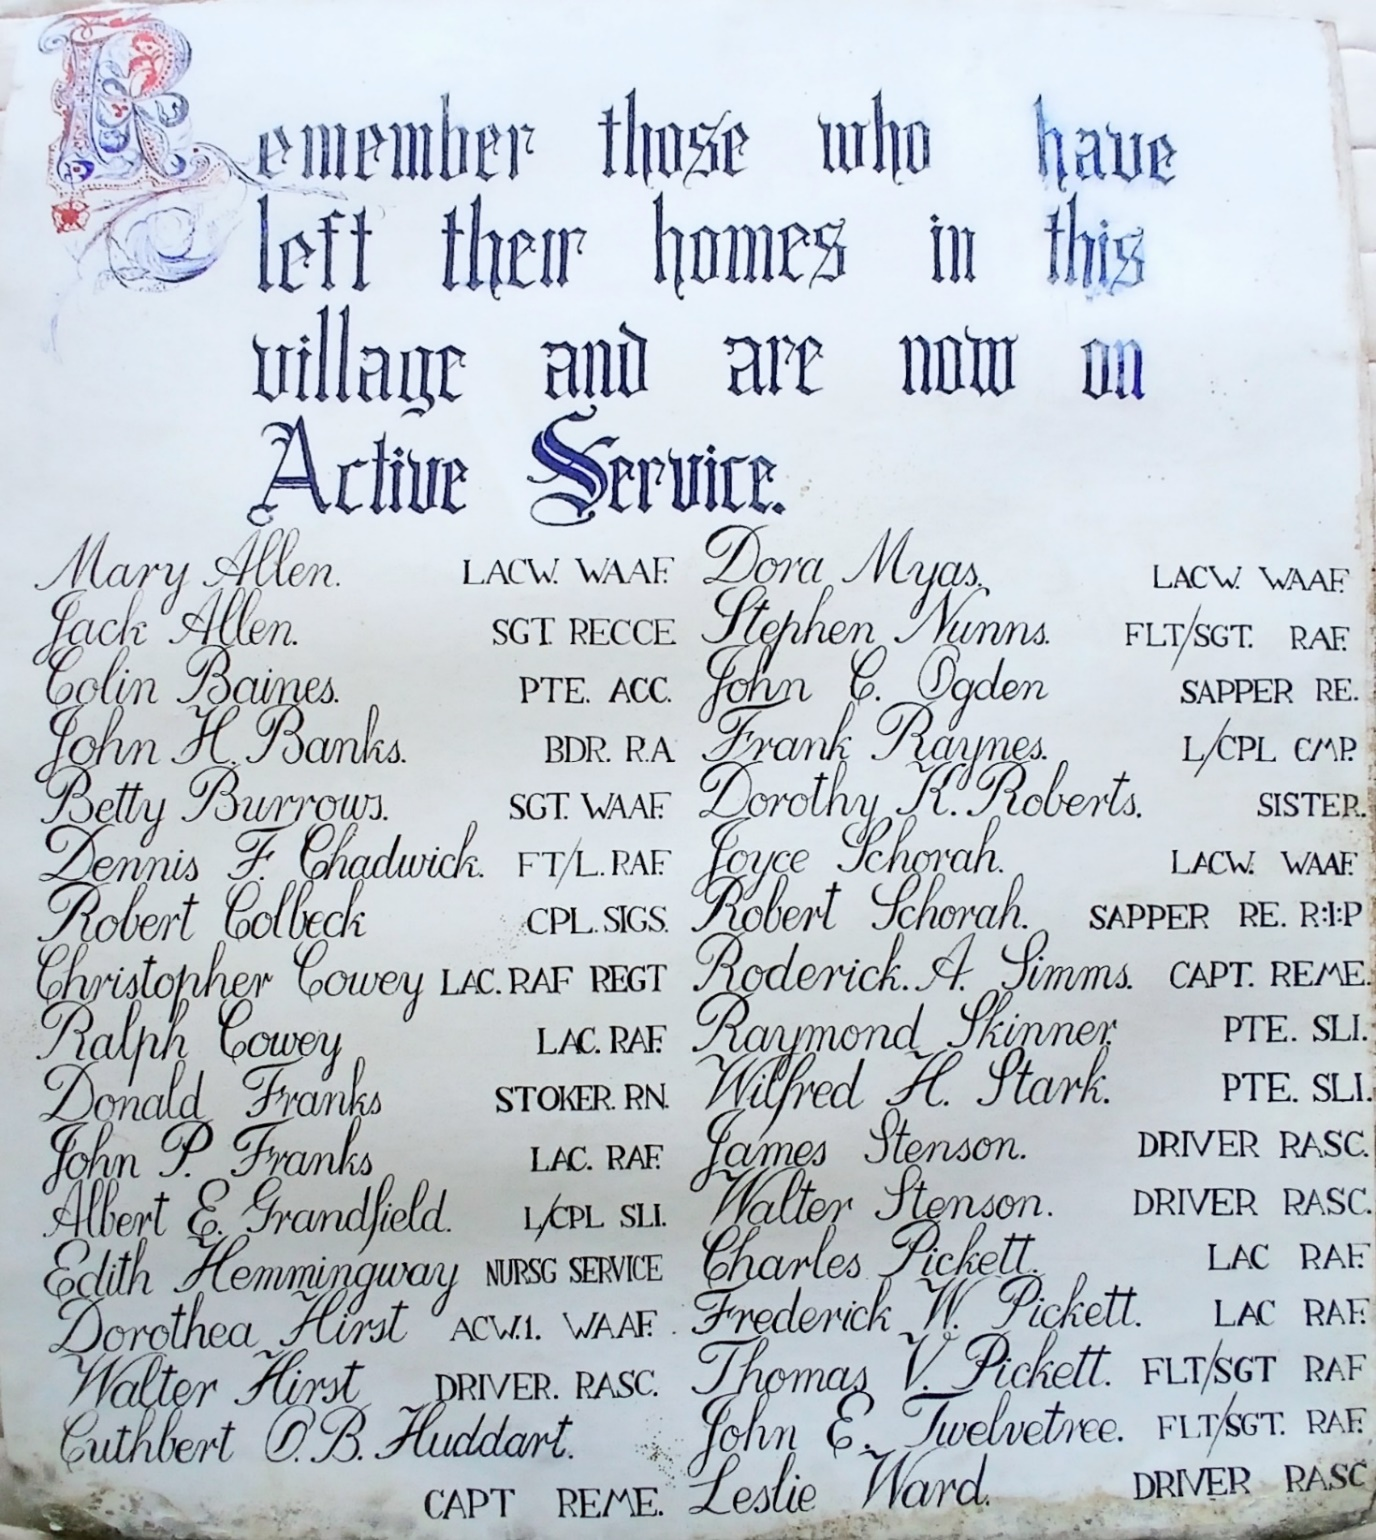 Remember those who have
left their homes in this
village and are now on
Active Service.
Mary Allen. LACW. WAAF.
Jack Allen. SGT. RECCE
Colin Baines. PTE. ACC.
John H. Banks. BDR. R.A
Betty Burrows. SGT. WAAF.
Dennis F. Chadwick. FT/L. RAF.
Robert Colbeck CPL. SIGS.
Christopher Cowey LAC. RAF REGT
Ralph Cowey LAC. RAF.
Donald Franks STOKER. RN.
John P. Franks LAC. RAF.
Albert E. Grandfield. L/CPL SLI.
Edith Hemmingway NURSG SERVICE
Dorothea Hirst ACW.1. WAAF.
Walter Hirst DRIVER. RASC.
Cuthbert O.B. Huddart.
CAPT REME.
Dora Myas. LACW. WAAF.
Stephen Nunns. FLT/SGT. RAF.
John C. Ogden SAPPER RE.
Frank Raynes. L/CPL CMP.
Dorothy K. Roberts. SISTER.
Joyce Schorah. LACW. WAAF.
Robert Schorah. SAPPER RE. R:I:P
Roderick. A. Simms. CAPT. REME.
Raymond Skinner. PTE. SLI.
Wilfred H. Stark. PTE. SLI.
James Stenson. DRIVER RASC.
Walter Stenson. DRIVER RASC.
Charles Pickett. LAC RAF.
Frederick W. Pickett. LAC RAF.
Thomas V. Pickett. FLT/SGT RAF
John E. Twelvetree. FLT/SGT. RAF.
Leslie Ward. DRIVER RASC